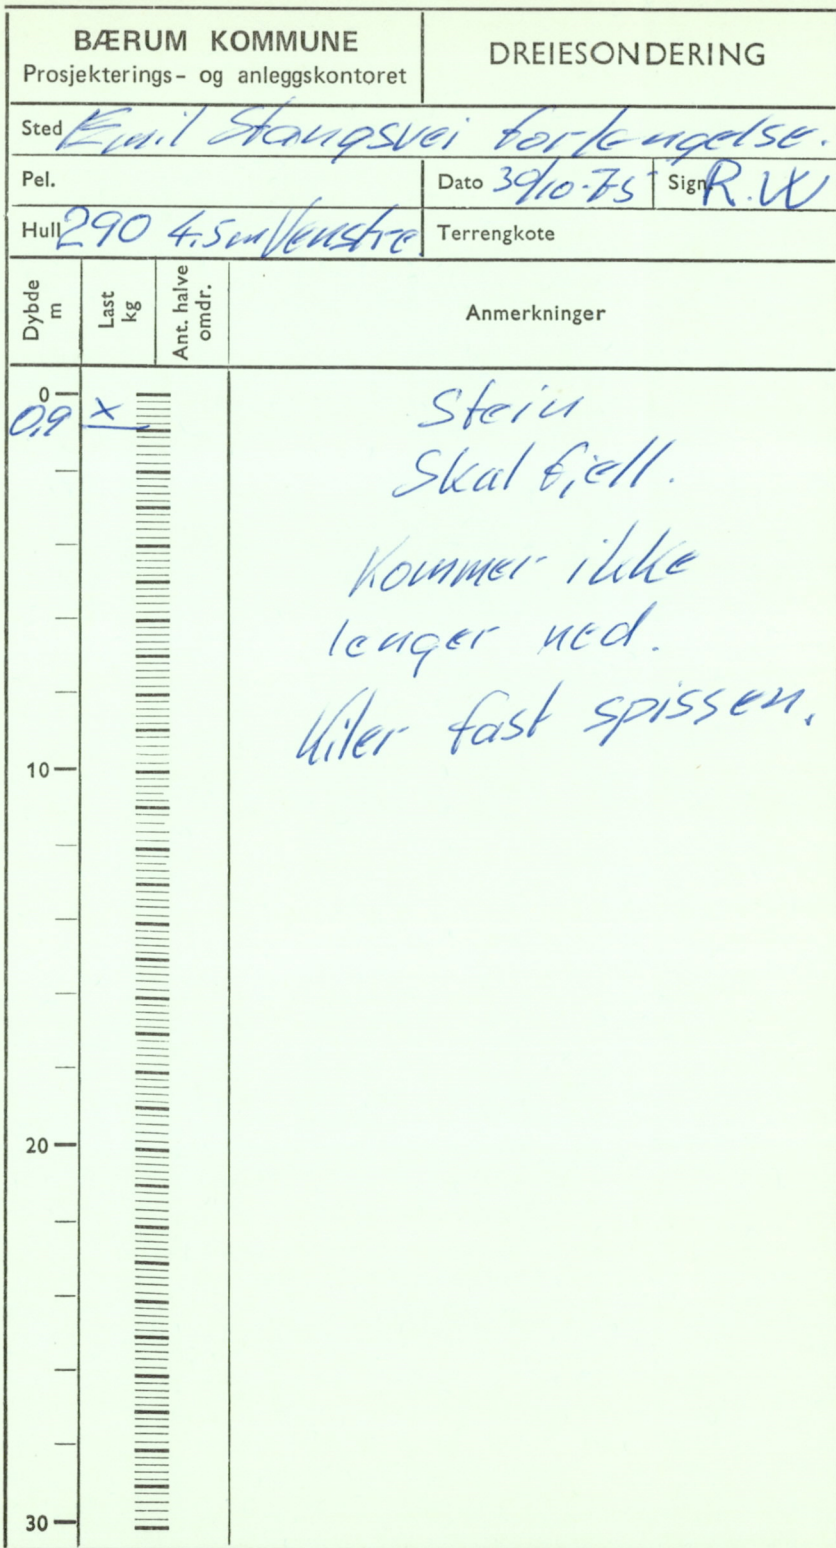 BÆRUM KOMMUNE
Prosjekterings- og anleggskontoret
DREIESONDERING
Sted Emil Stangsvei forlengelse.
Pel.
Dato 30/10-75
Sign. R.W
Hull 290 4.5m Venstre
Terrengkote
Dybde m
Last kg
Ant. halve omdr.
Anmerkninger
0
0,9 x
Stein
Skal fjell.
Kommer ikke
lenger ned.
Kiler fast spissen.
10
20
30